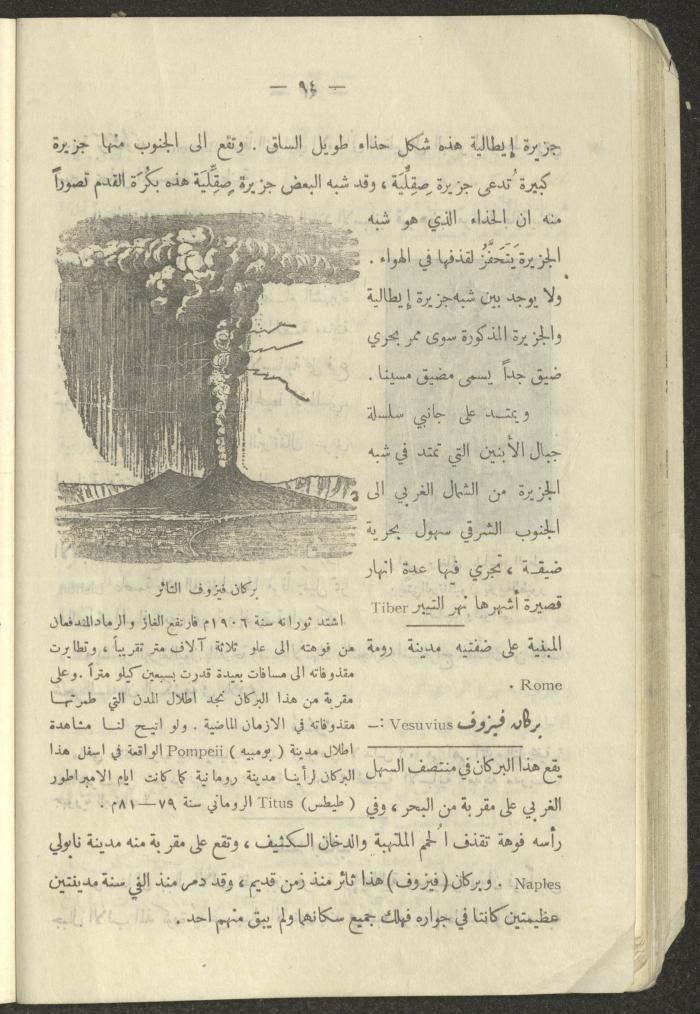 — ٩٤ —
جزيرة إيطالية هذه شكل حذاء طويل الساق . وتقع الى الجنوب منها جزيرة
كبيرة تُدعى جزيرة صِقِلِّيَة ، وقد شبه البعض جزيرة صِقِلِّيَة هذه بكُرَة القدم تصوراً
منه ان الحذاء الذي هو شبه
الجزيرة يَتَحَفَّزُ لقذفها في الهواء .
ولا يوجد بين شبه جزيرة إيطالية
والجزيرة المذكورة سوى ممر بحري
ضيق جداً يسمى مضيق مسينا .
ويمتـد على جانبي سلسلة
جبال الأبنين التي تمتد في شبه
الجزيرة من الشمال الغربي الى
الجنوب الشرقي سهول بحرية
ضيقـة ، تجري فيها عدة انهار
قصيرة أشهرها نهر التيبر Tiber
المبنية على ضفتيه مدينة رومة
Rome .
بركان فيزوف Vesuvius :ــ
يقع هذا البركان في منتصف السهل
الغربي على مقربة من البحر ، وفي
بركان فيزوف الثائر
اشتد ثورانه سنة ١٩٠٦م فارتفع الغاز والرماد المندفعان
من فوهته الى علو ثلاثة آلاف متر تقريباً ، وتطايرت
مقذوفاته الى مسافات بعيدة قدرت بسبعين كيلو متراً . وعلى
مقربة من هذا البركان نجد اطلال المدن التي طمرتهـا
مقذوفاته في الازمان الماضية . ولو اتيـح لنـا مشاهدة
اطلال مدينة ( بومبيه ) Pompeii الواقعة في اسفل هذا
البركان لرأينـا مدينة رومانية كما كانت ايام الامبراطور
( طيطس ) Titus الروماني سنة ٧٩—٨١م .
رأسه فوهة تقذف الُحمم الملتهبة والدخان الـكثيف ، وتقع على مقربة منه مدينة نابولي
Naples . وبركان ( فيزوف ) هذا ثائر منذ زمن قديم ، وقد دمر منذ الفي سنة مدينتين
عظيمتين كانتا في جواره فهلك جميع سكانهما ولم يبق منهم احد .